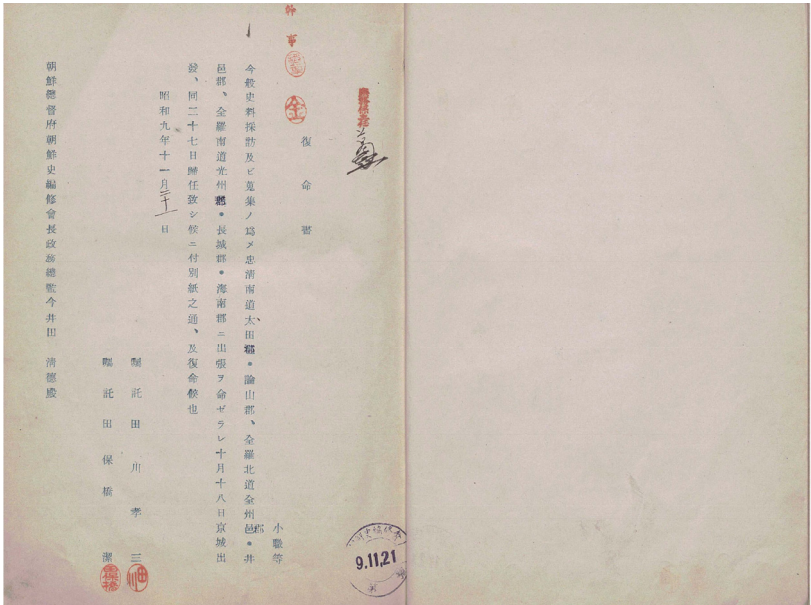 復命書
小職等
今般史料採訪及ビ蒐集ノ爲メ忠淸南道太田郡・論山郡、全羅北道全州邑・井
邑郡、全羅南道光州郡・長城郡・海南郡ニ出張ヲ命ゼラレ十月十八日京城出
發、同二十七日歸任致シ候ニ付別紙之通、及復命候也
昭和九年十一月二十一日
囑託田川孝三
囑託田保橋潔
朝鮮總督府朝鮮史編修會長政務總監今井田淸德殿
9.11.21